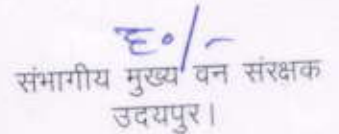 ह०/-
संभागीय मुख्य वन संरक्षक
उदयपुर।